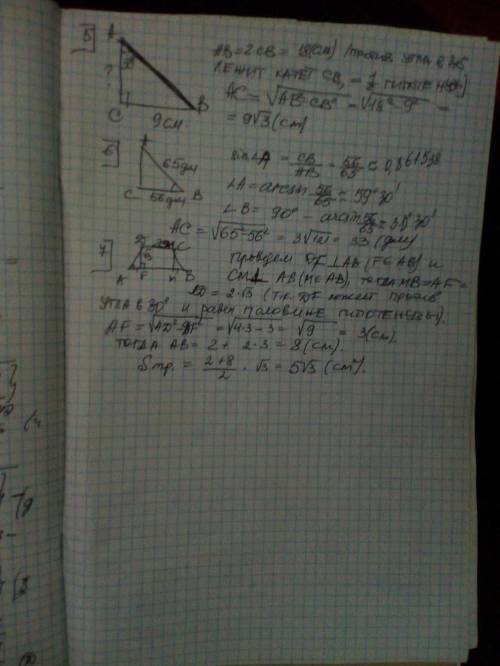 5
A
30°
?
C
B
9см
AB=2CB= 18(см) (против угла в 30°
лежит катет CB, = 1/2 гипотенузы)
AC = √AB²-CB² = √18²-9² =
= 9√3 (см)
6
65дм
C
B
56дм
sin∠A = CB/AB = 56/65 ≈ 0,861538
∠A = arcsin 56/65 ≈ 59°30'
∠B = 90° - arcsin 56/65 ≈ 30°30'
AC = √65²-56² = 3√121 = 33 (дм)
7
C
A
F
B
проведем DF⊥AB (F∈AB) и
CM⊥ AB (M∈AB), тогда MB=AF=
AD = 2·√3 (т.к. DF лежит против
угла в 30° и равен половине гипотенузы).
AF = √AD²-DF² = √4·3-3 = √9 = 3(см).
Тогда AB = 2 + 2·3 = 8 (см).
Sтр. = 2+8/2 · √3 = 5√3 (см²).